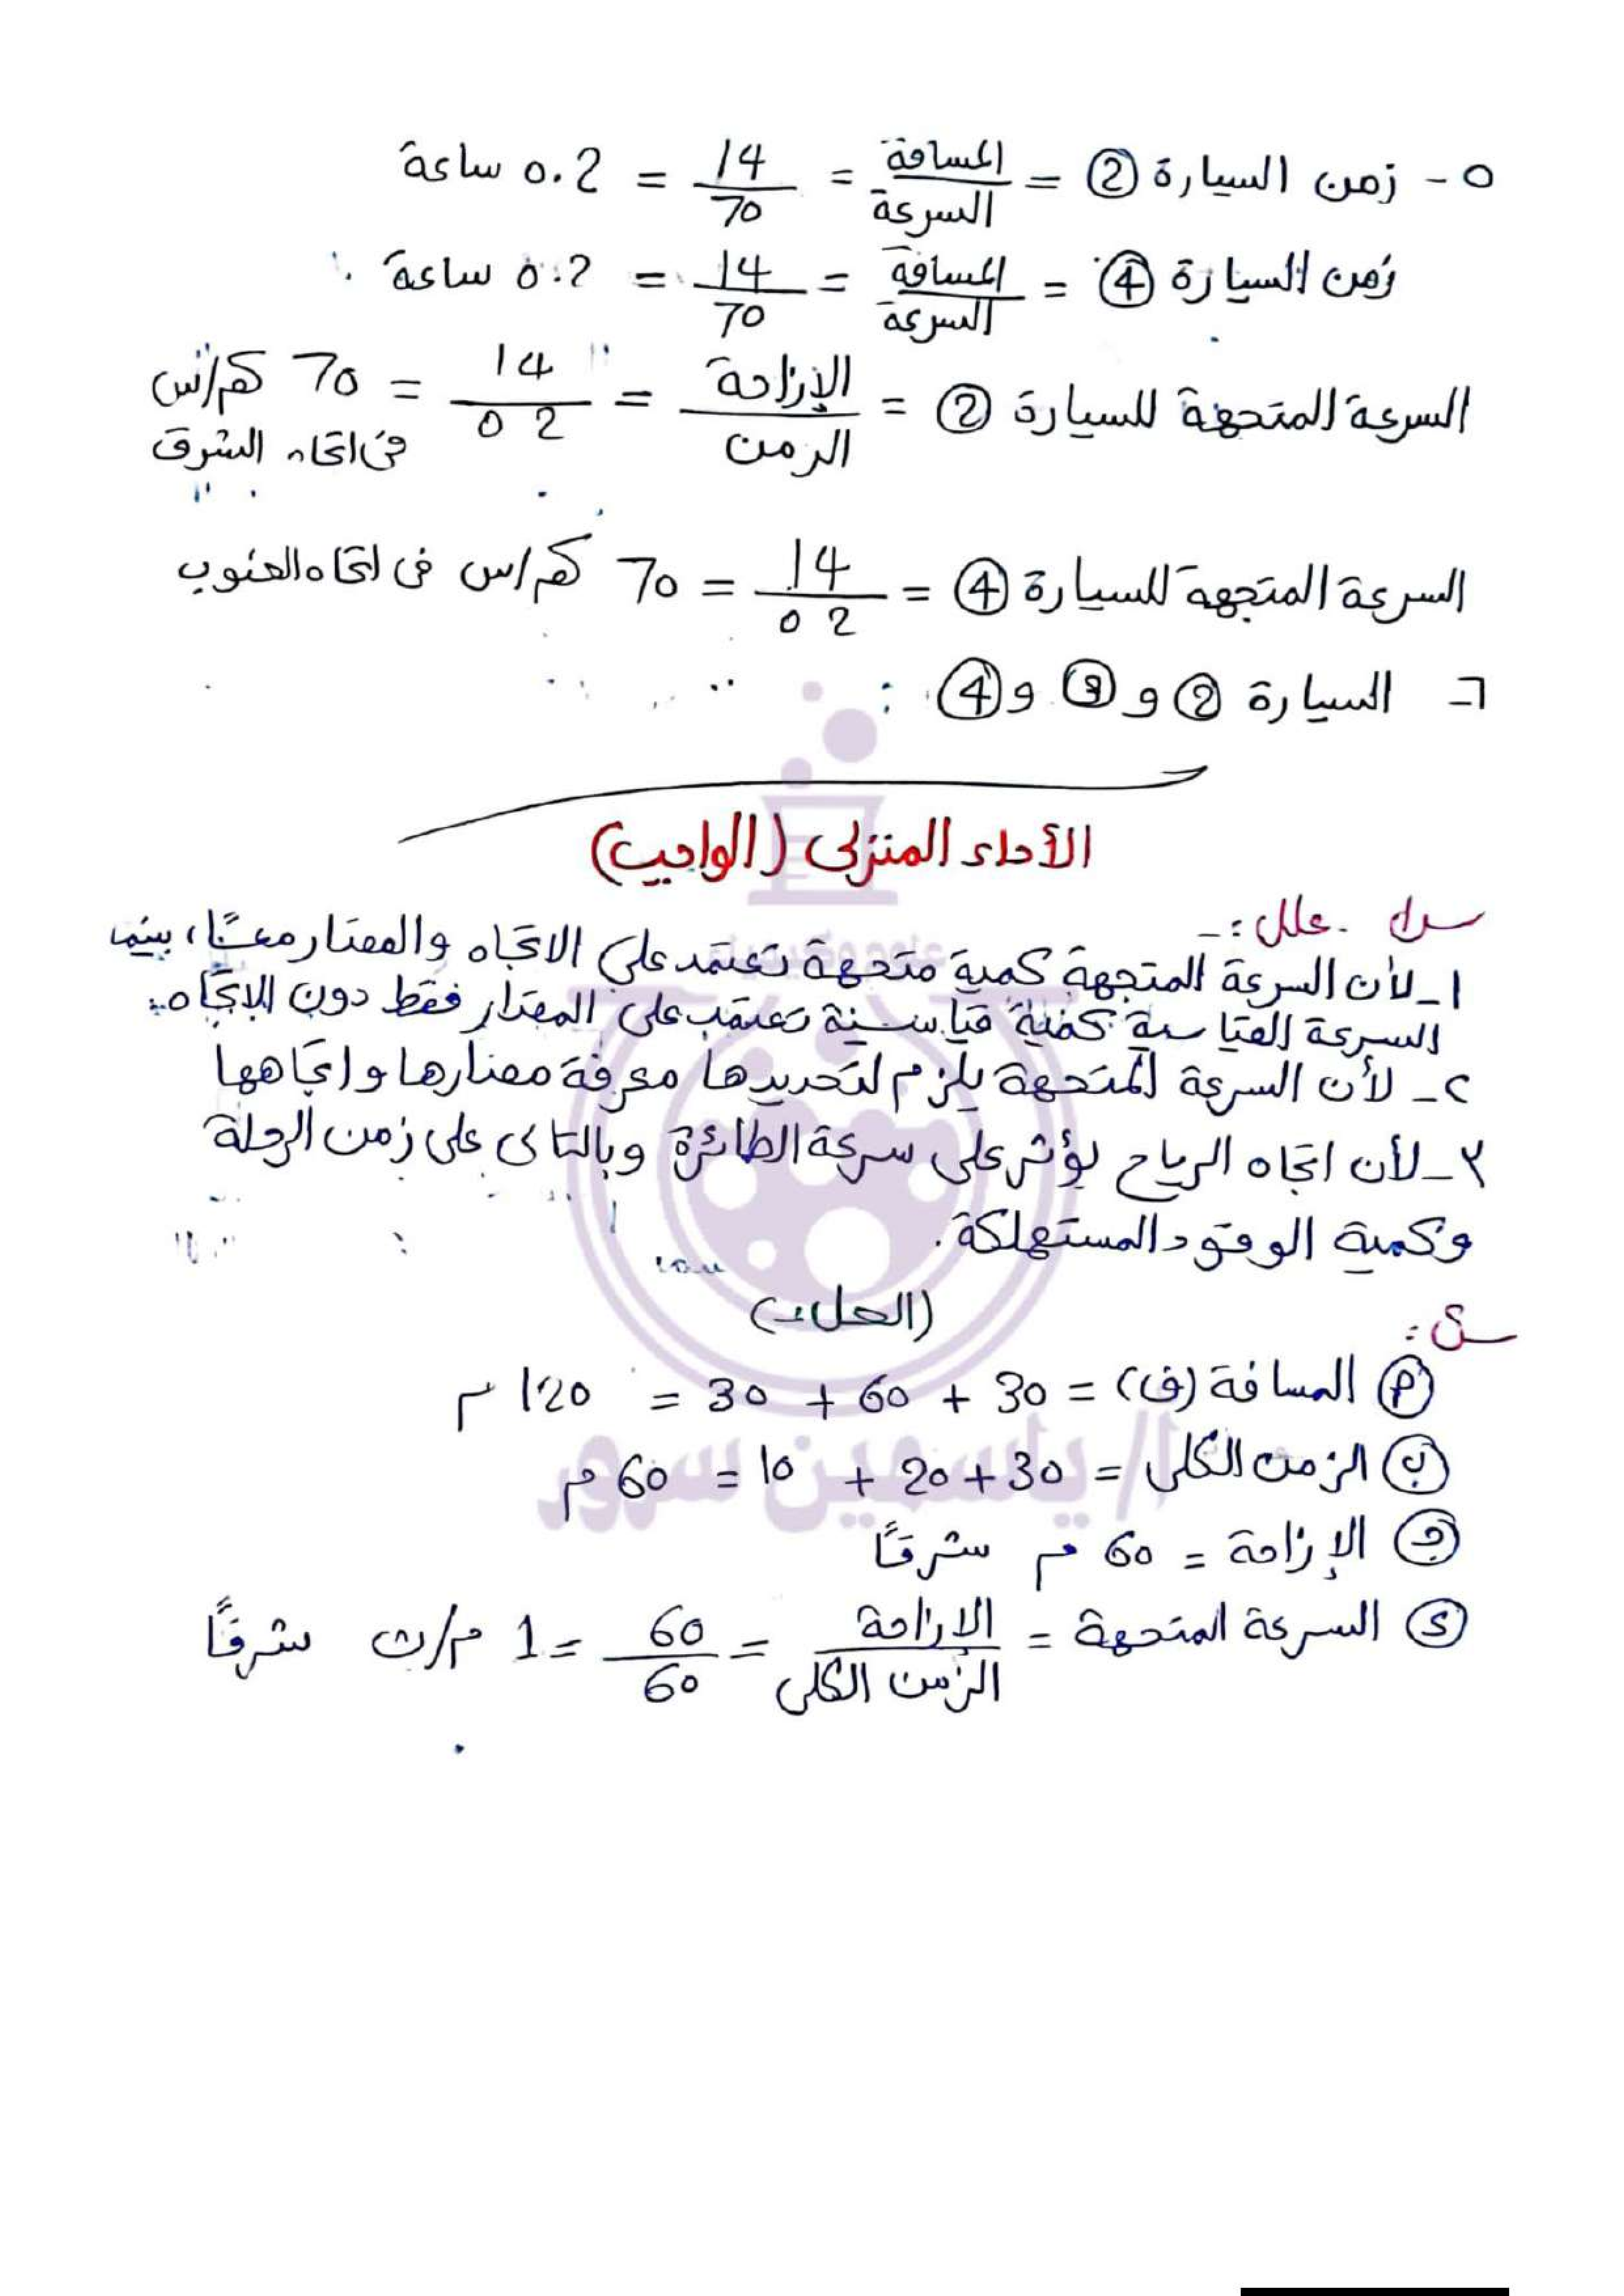 ٥- زمن السيارة ② = المسافة / السرعة = 14 / 70 = 0.2 ساعة
زمن السيارة ④ = المسافة / السرعة = 14 / 70 = 0.2 ساعة
السرعة المتجهة للسيارة ② = الإزاحة / الزمن = 14 / 0.2 = 70 كم/س
فى اتجاه الشرق
السرعة المتجهة للسيارة ④ = 14 / 0.2 = 70 كم/س فى اتجاه الجنوب
٦- السيارة ② و ③ و ④
الأداء المنزلى (الواجب)
س١ علل :-
١- لأن السرعة المتجهة كمية متجهة تعتمد على الاتجاه والمقدار معًا، بينما
السرعة القياسية كمية قياسية تعتمد على المقدار فقط دون الاتجاه.
٢- لأن السرعة المتجهة يلزم لتحديدها معرفة مقدارها واتجاهها
٣- لأن اتجاه الرياح يؤثر على سرعة الطائرة وبالتالى على زمن الرحلة
وكمية الوقود المستهلكة.
(الحل)
س٢:
أ المسافة (ف) = 30 + 60 + 30 = 120 م
ب الزمن الكلى = 30 + 20 + 10 = 60 م
ج الإزاحة = 60 م شرقًا
د السرعة المتجهة = الإزاحة / الزمن الكلى = 60 / 60 = 1 م/ث شرقًا
أ/ ياسمين سرور